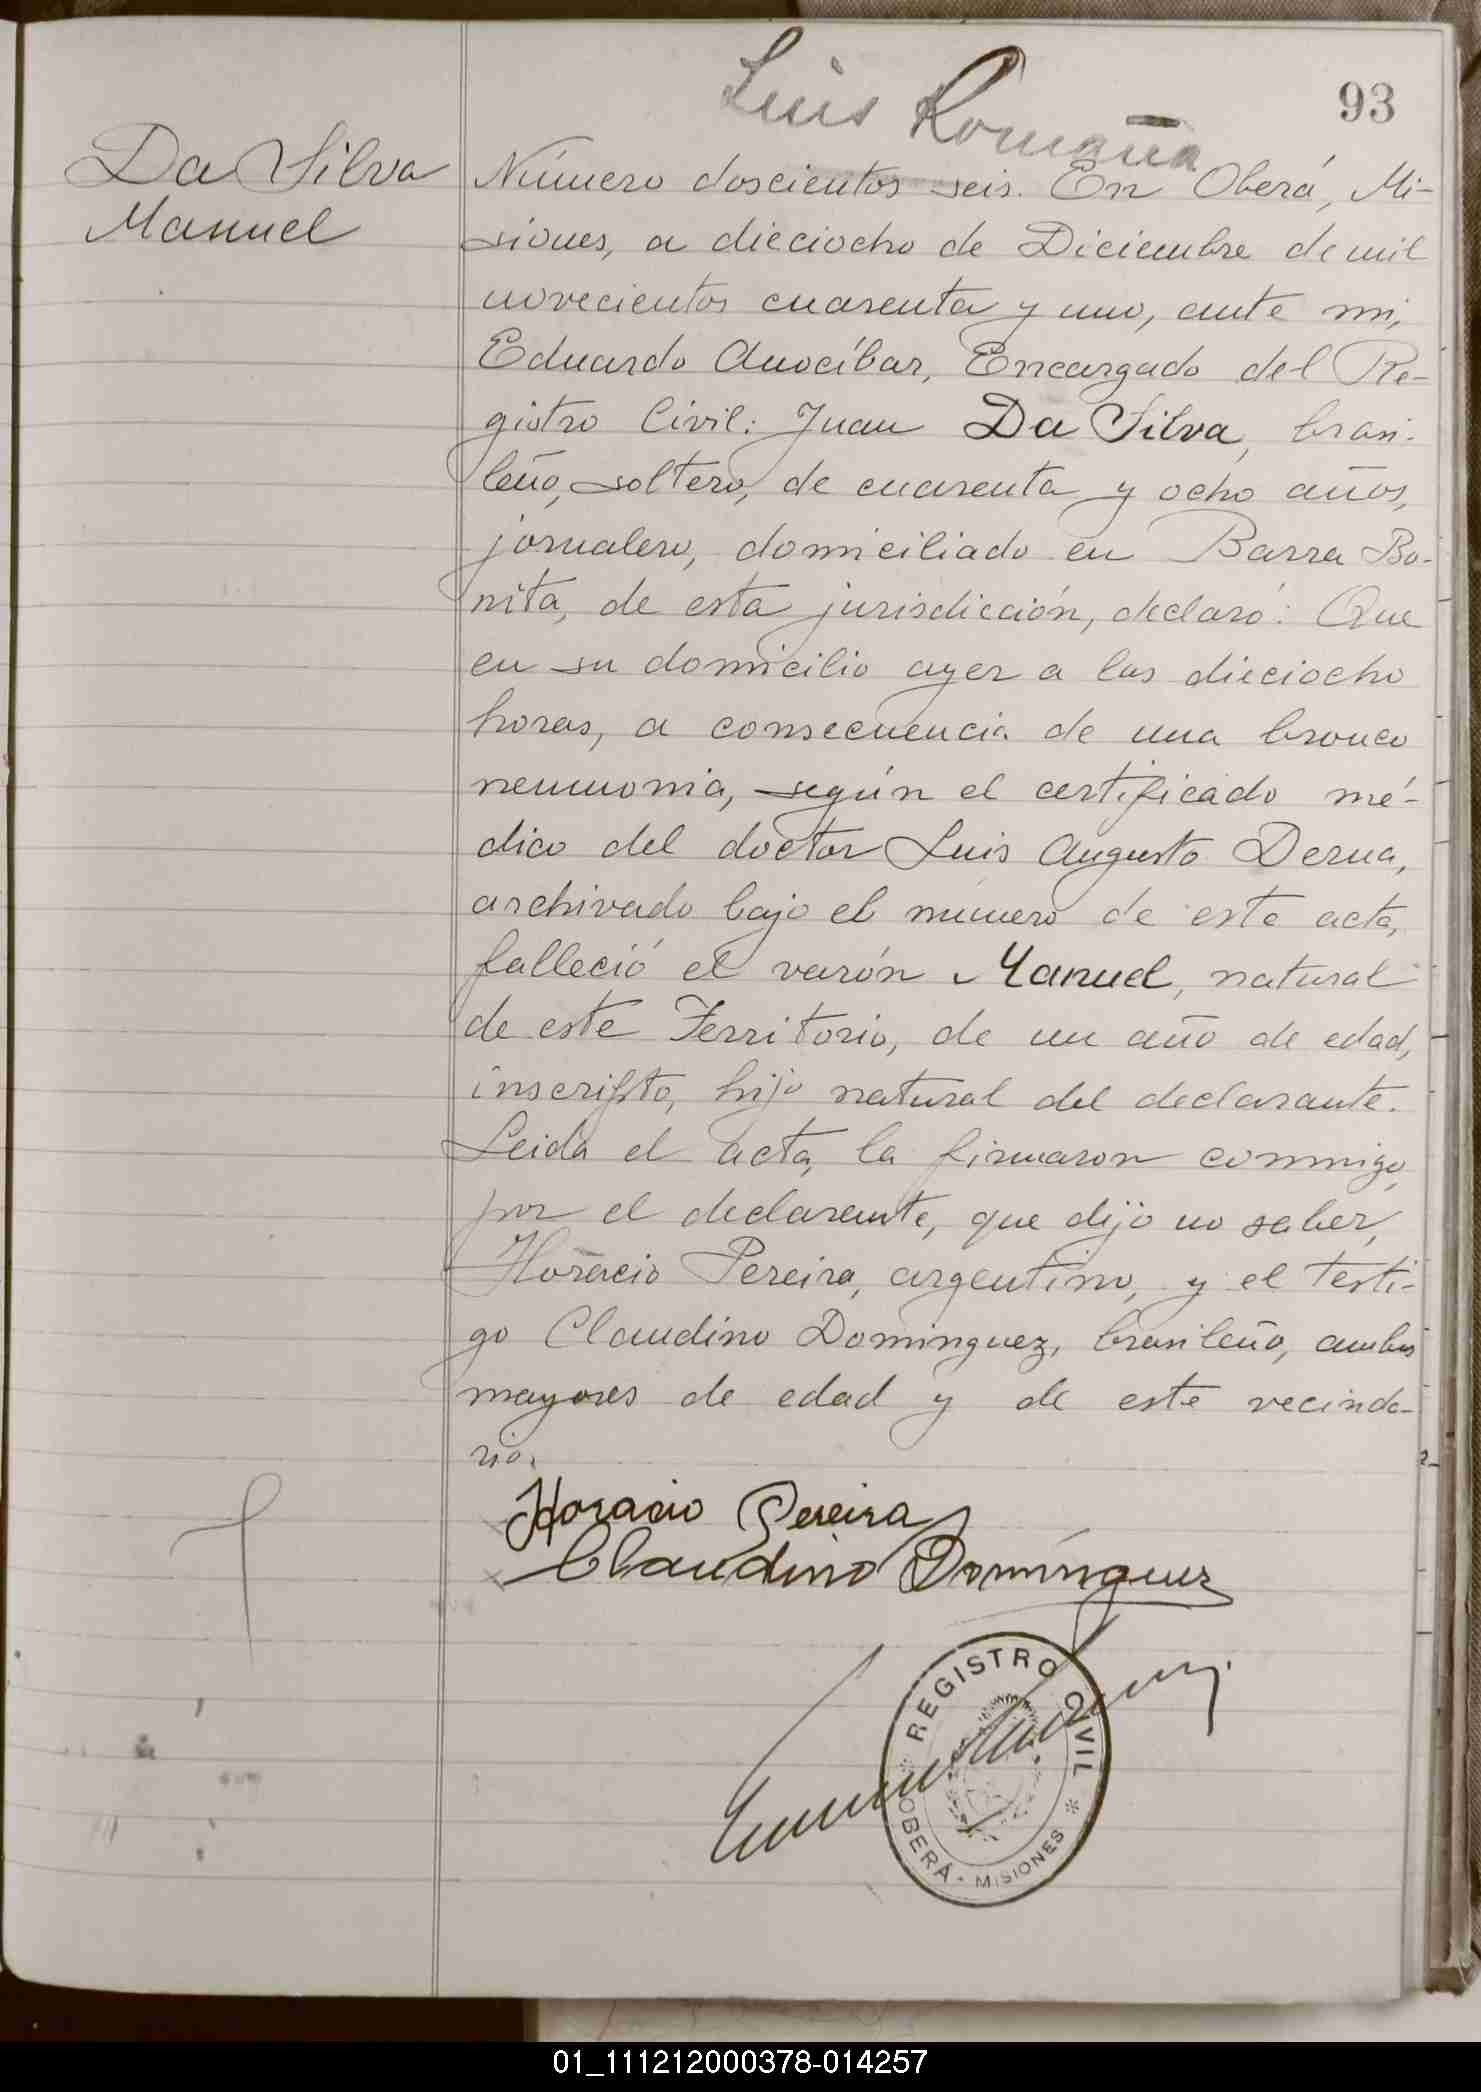 Luis Romaña
93
Da Silva
Manuel
Número doscientos seis. En Oberá, Mi-
siones, a dieciocho de Diciembre de mil
novecientos cuarenta y uno, ante mi,
Eduardo Anocíbar, Encargado del Re-
gistro Civil: Juan Da Silva, brasi-
leño, soltero, de cuarenta y ocho años,
jornalero, domiciliado en Barra Bo-
nita, de esta jurisdicción, declaró: Que
en su domicilio ayer a las dieciocho
horas, a consecuencia de una bronco
neumonia, según el certificado mé-
dico del doctor Luis Augusto Derna,
archivado bajo el número de este acta,
falleció el varón Manuel, natural
de este Territorio, de un año de edad,
inscripto, hijo natural del declarante.
Leida el acta, la firmaron conmigo,
por el declarante, que dijo no saber,
Horacio Pereira, argentino, y el testi-
go Claudino Dominguez, brasileño, ambos
mayores de edad y de este vecinda-
rio.
Horacio Pereira
Claudino Domínguez
REGISTRO CIVIL
OBERÁ - MISIONES
01_111212000378-014257